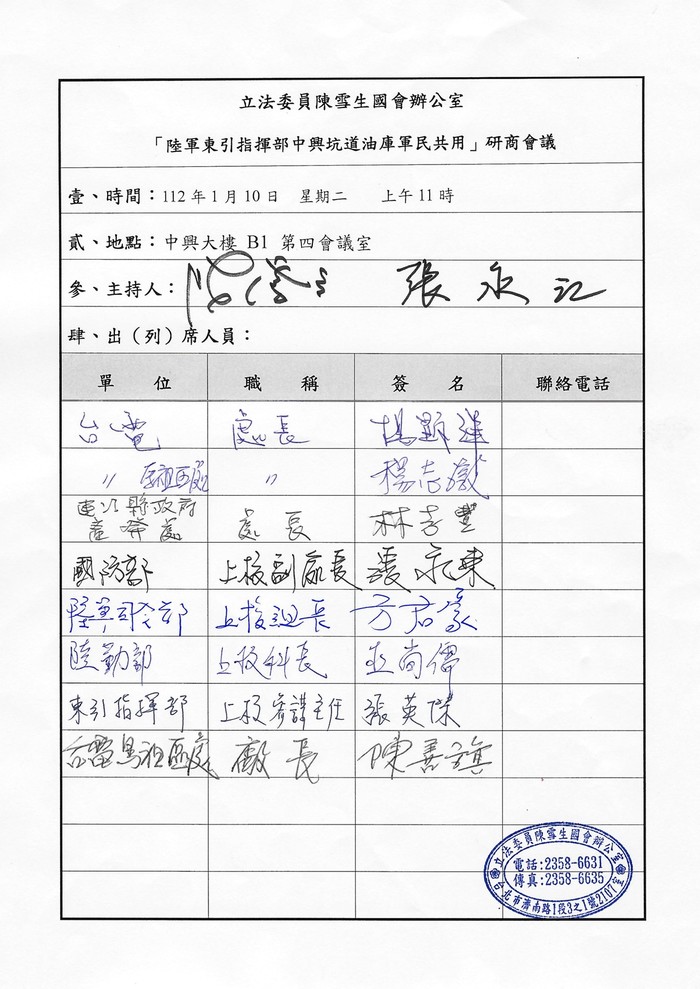 立法委員陳雪生國會辦公室
「陸軍東引指揮部中興坑道油庫軍民共用」研商會議
壹、時間：112年1月10日 星期二 上午11時
貳、地點：中興大樓 B1 第四會議室
參、主持人： 張永江
肆、出（列）席人員：
單位 職稱 簽名 聯絡電話
台電 處長
〃 馬祖區處 〃 楊志
連江縣政府
產發處 處長 林孝豐
國防部 上校副處長 張永東
陸軍司令部 上校組長 方君豪
陸勤部 上校科長
東引指揮部 上校參謀主任 張英傑
台電馬祖區處 廠長 陳善旗
立法委員陳雪生國會辦公室
電話:2358-6631
傳真:2358-6635
台北市濟南路1段3之1號2107室